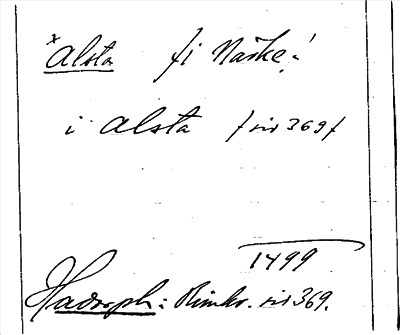 × Alsta fi Närke!
i Alsta /sid 369/
1499
Hadorph: Rimkr. sid 369.